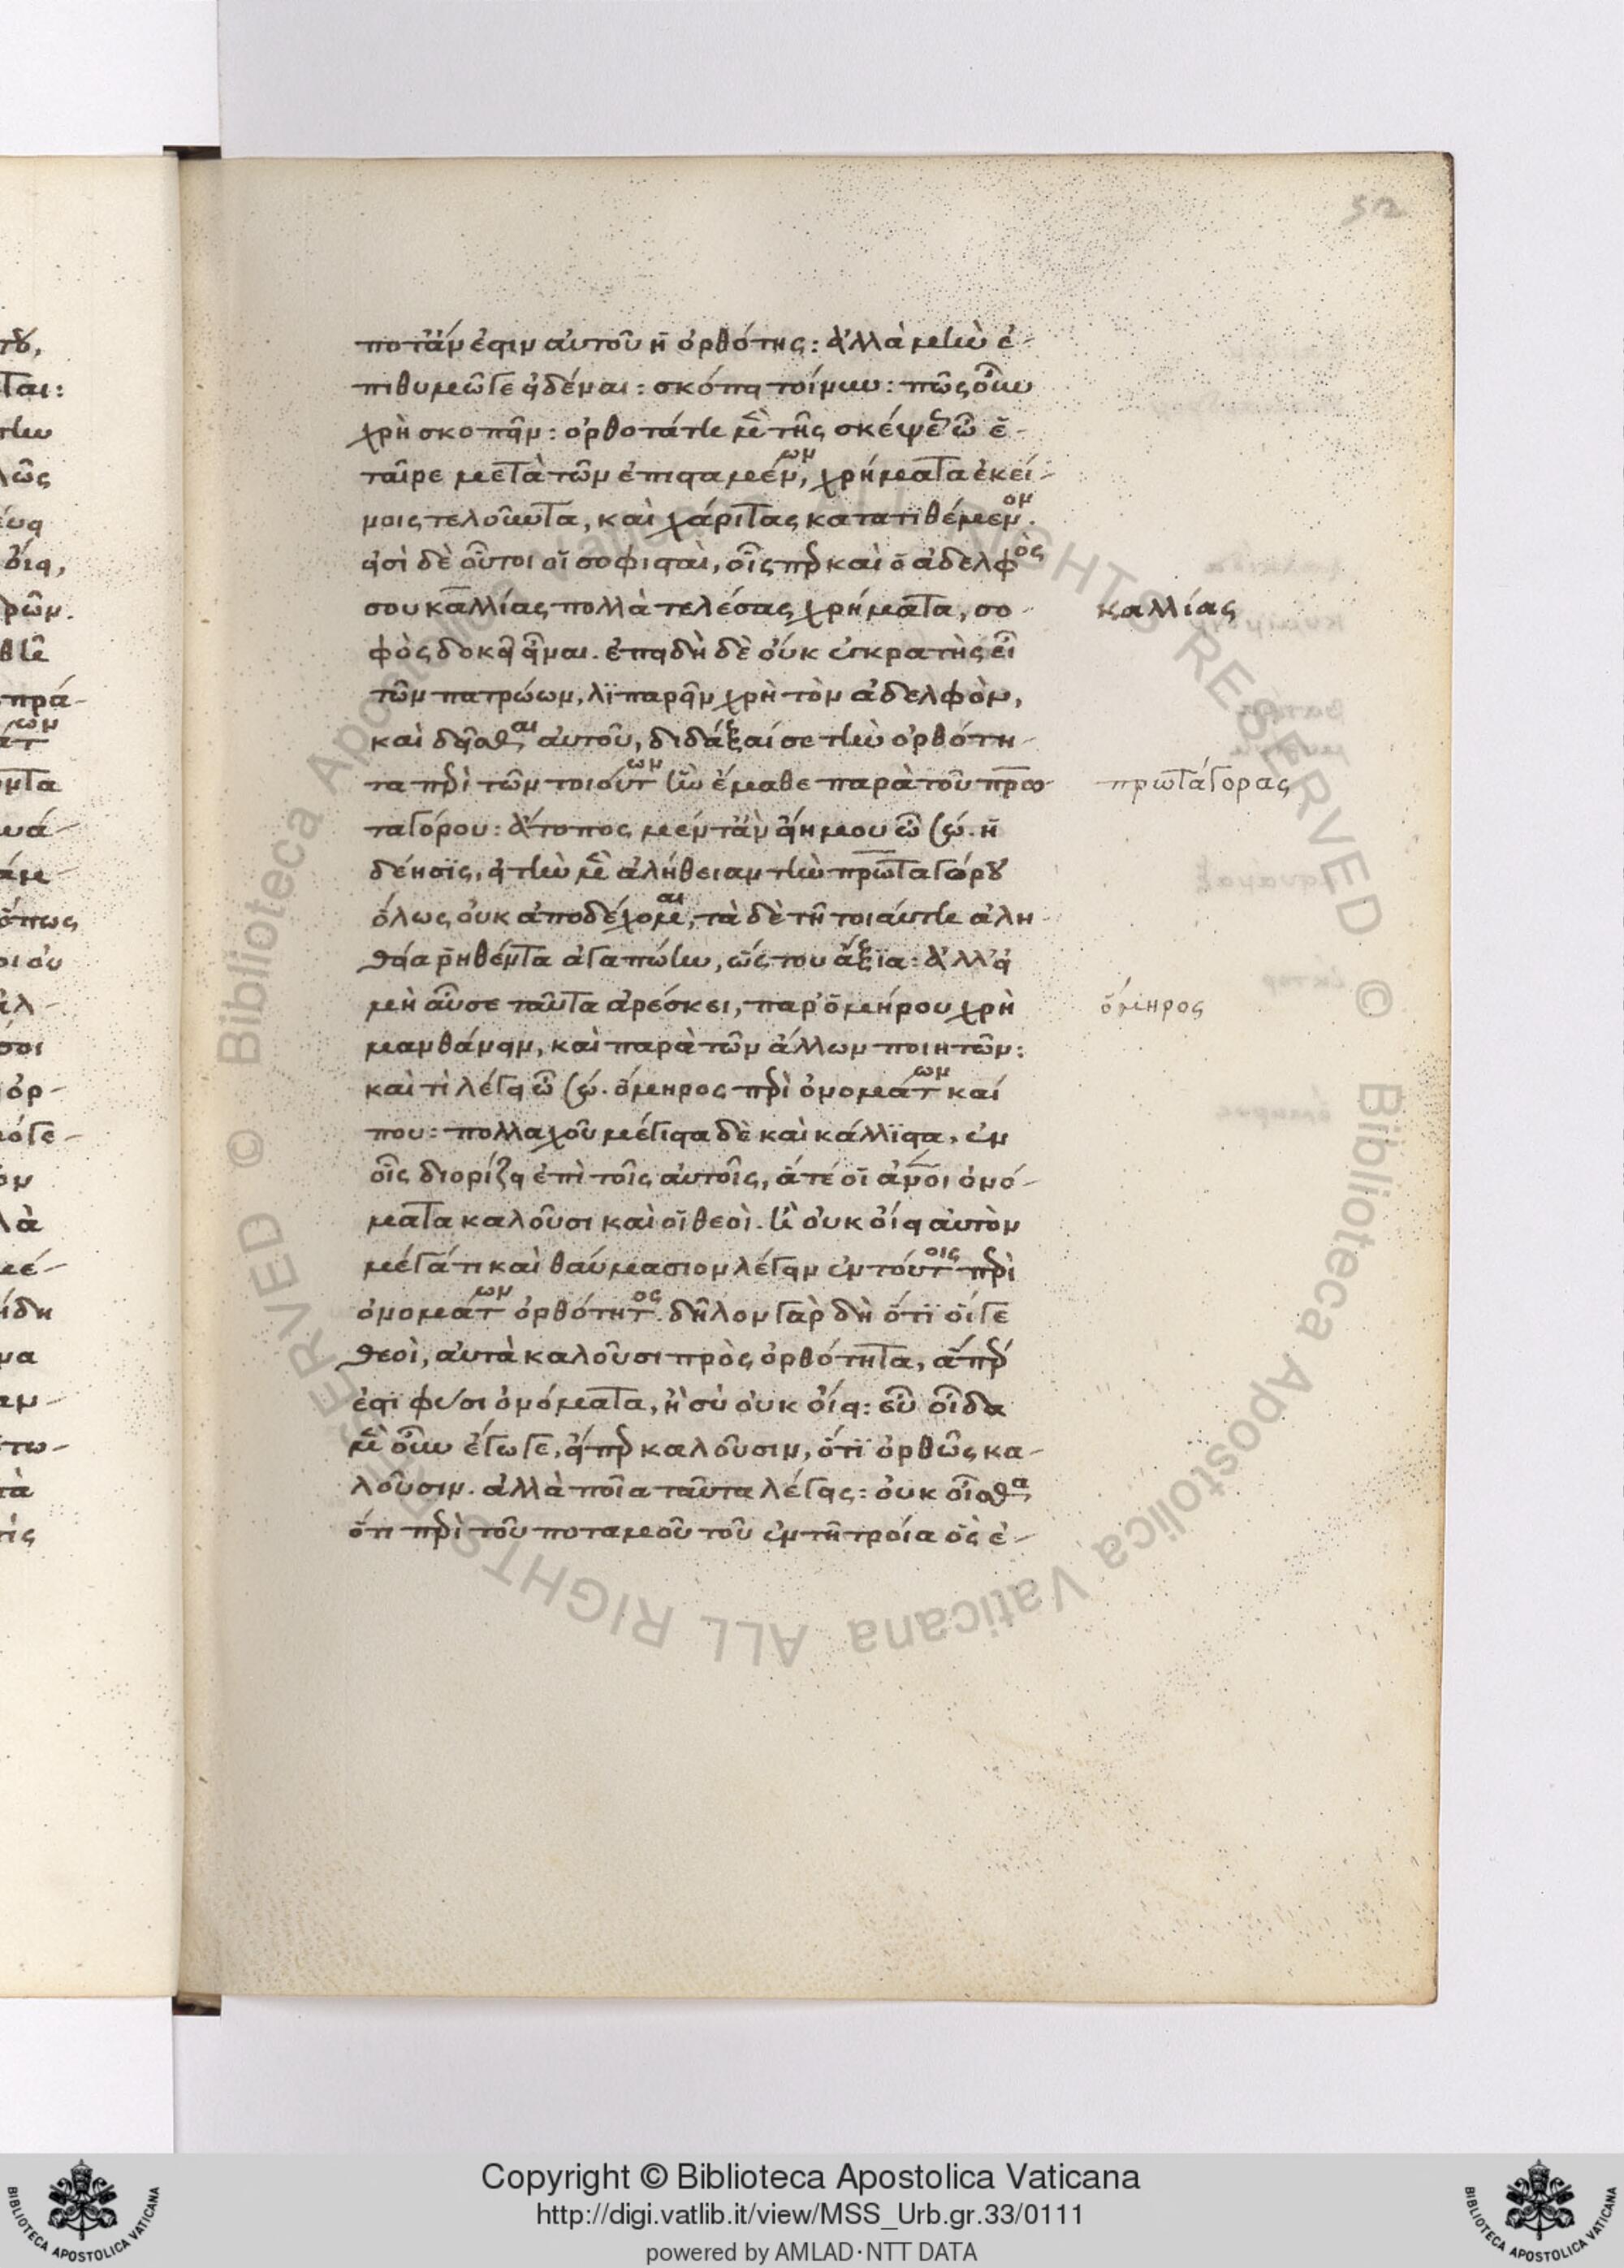 ποτ' ἄν ἐστιν αὐτοῦ ἡ ὀρθότης: ἀλλὰ μὴν ἐ-
πιθυμῶ γε εἰδέναι: σκόπει τοίνυν: πῶς οὖν
χρὴ σκοπεῖν: ὀρθοτάτην μὲν τῆς σκέψεως ὦ ἑ-
ταῖρε μετὰ τῶν ἐπισταμένων, χρήματα ἐκεί-
νοις τελοῦντα, καὶ χάριτας κατατιθέμενον.
εἰσὶ δὲ οὗτοι οἱ σοφισταὶ, οἷς περ καὶ ὁ ἀδελφὸς
σου καλλίας πολλὰ τελέσας χρήματα, σο-
καλλίας
φὸς δοκεῖ εἶναι. ἐπειδὴ δὲ οὐκ ἐγκρατὴς εἶ
τῶν πατρώων, λιπαρεῖν χρὴ τὸν ἀδελφὸν,
καὶ δεῖσθαι αὐτοῦ, διδάξαί σε τὴν ὀρθότη-
τα περὶ τῶν τοιούτων ἣν ἔμαθε παρὰ τοῦ πρω-
πρωταγόρας
ταγόρου: ἄτοπος μέντ' ἂν εἴη μου ὦ σώ. ἡ
δέησις, εἰ τὴν μὲν ἀλήθειαν τὴν πρωταγόρου
ὅλως οὐκ ἀποδέχομαι, τὰ δὲ τῇ τοιαύτῃ ἀλη-
θείᾳ ῥηθέντα ἀγαπώην, ὥς του ἄξια: ἀλλ' εἰ
μὴ αὖ σε ταῦτα ἀρέσκει, παρ' ὁμήρου χρὴ
ὅμηρος
μανθάνειν, καὶ παρὰ τῶν ἄλλων ποιητῶν:
καὶ τί λέγει ὦ σώ. ὅμηρος περὶ ὀνομάτων καί
που: πολλαχοῦ μέγιστα δὲ καὶ κάλλιστα, ἐν
οἷς διορίζει ἐπὶ τοῖς αὐτοῖς, ἅ τε οἱ ἄνοι ὀνό-
ματα καλοῦσι καὶ οἱ θεοὶ. ἢ οὐκ οἴει αὐτὸν
μέγά τι καὶ θαυμάσιον λέγειν ἐν τούτοις περὶ
ὀνομάτων ὀρθότητος. δῆλον γὰρ δὴ ὅτι οἵ γε
θεοὶ, αὐτὰ καλοῦσι πρὸς ὀρθότητα, ἅπερ
ἐστι φύσι ὀνόματα, ἢ σὺ οὐκ οἴει: εὖ οἶδα
μὲν οὖν ἔγωγε, εἴπερ καλοῦσιν, ὅτι ὀρθῶς κα-
λοῦσιν. ἀλλὰ ποῖα ταῦτα λέγεις: οὐκ οἶσθα
ὅτι περὶ τοῦ ποταμοῦ τοῦ ἐν τῇ τροία ὃς ἐ-
Copyright © Biblioteca Apostolica Vaticana
http://digi.vatlib.it/view/MSS_Urb.gr.33/0111
powered by AMLAD·NTT DATA
© Biblioteca Apostolica Vaticana ALL RIGHTS RESERVED © Biblioteca Apostolica Vaticana ALL RIGHTS RESERVED
BIBLIOTECA APOSTOLICA VATICANA
BIBLIOTECA APOSTOLICA VATICANA